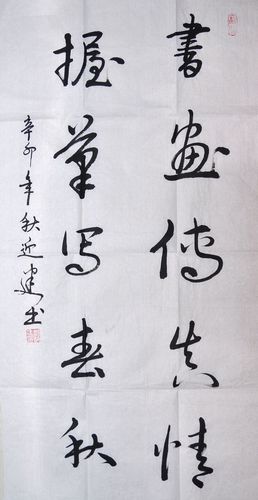 書畫傳真情
握筆寫春秋
辛卯年秋近建书